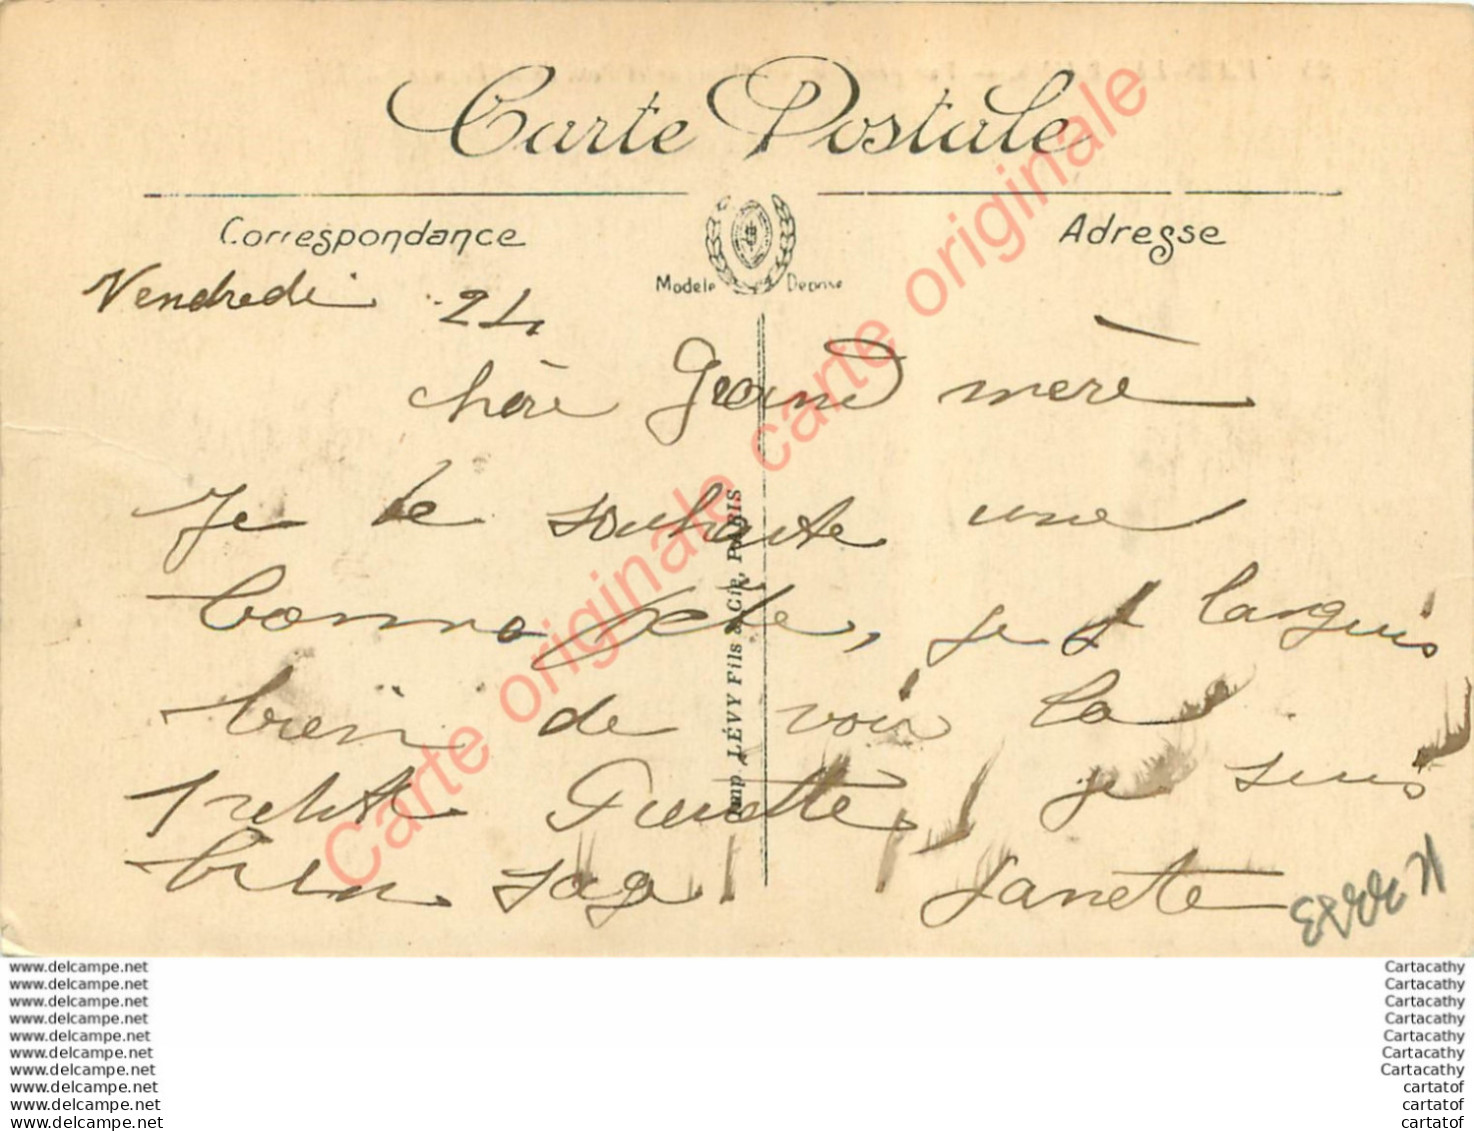 Carte Postale
Correspondance
Adresse
Modele Deposé
Vendredi 24
chère Grand mère
Je te souhaite une
bonne fete, je languis
bien de voir la
petite Pierette, je suis
bien sage Janete
Imp. LÉVY Fils & Cie, PARIS
Carte originale carte originale
www.delcampe.net
www.delcampe.net
www.delcampe.net
www.delcampe.net
www.delcampe.net
www.delcampe.net
www.delcampe.net
www.delcampe.net
www.delcampe.net
www.delcampe.net
Cartacathy
Cartacathy
Cartacathy
Cartacathy
Cartacathy
Cartacathy
Cartacathy
cartatof
cartatof
cartatof